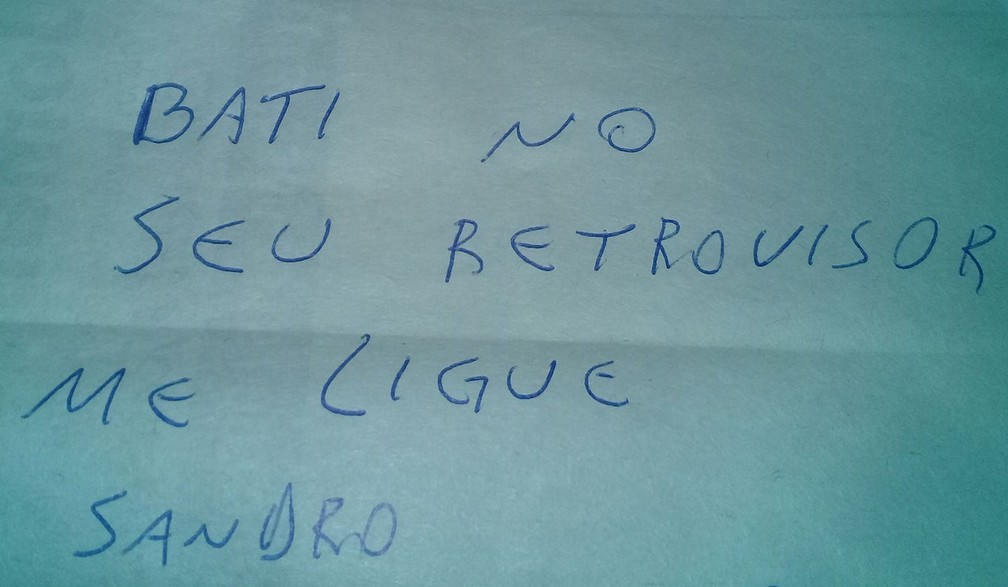 BATI NO
SEU RETROVISOR
ME LIGUE
SANDRO